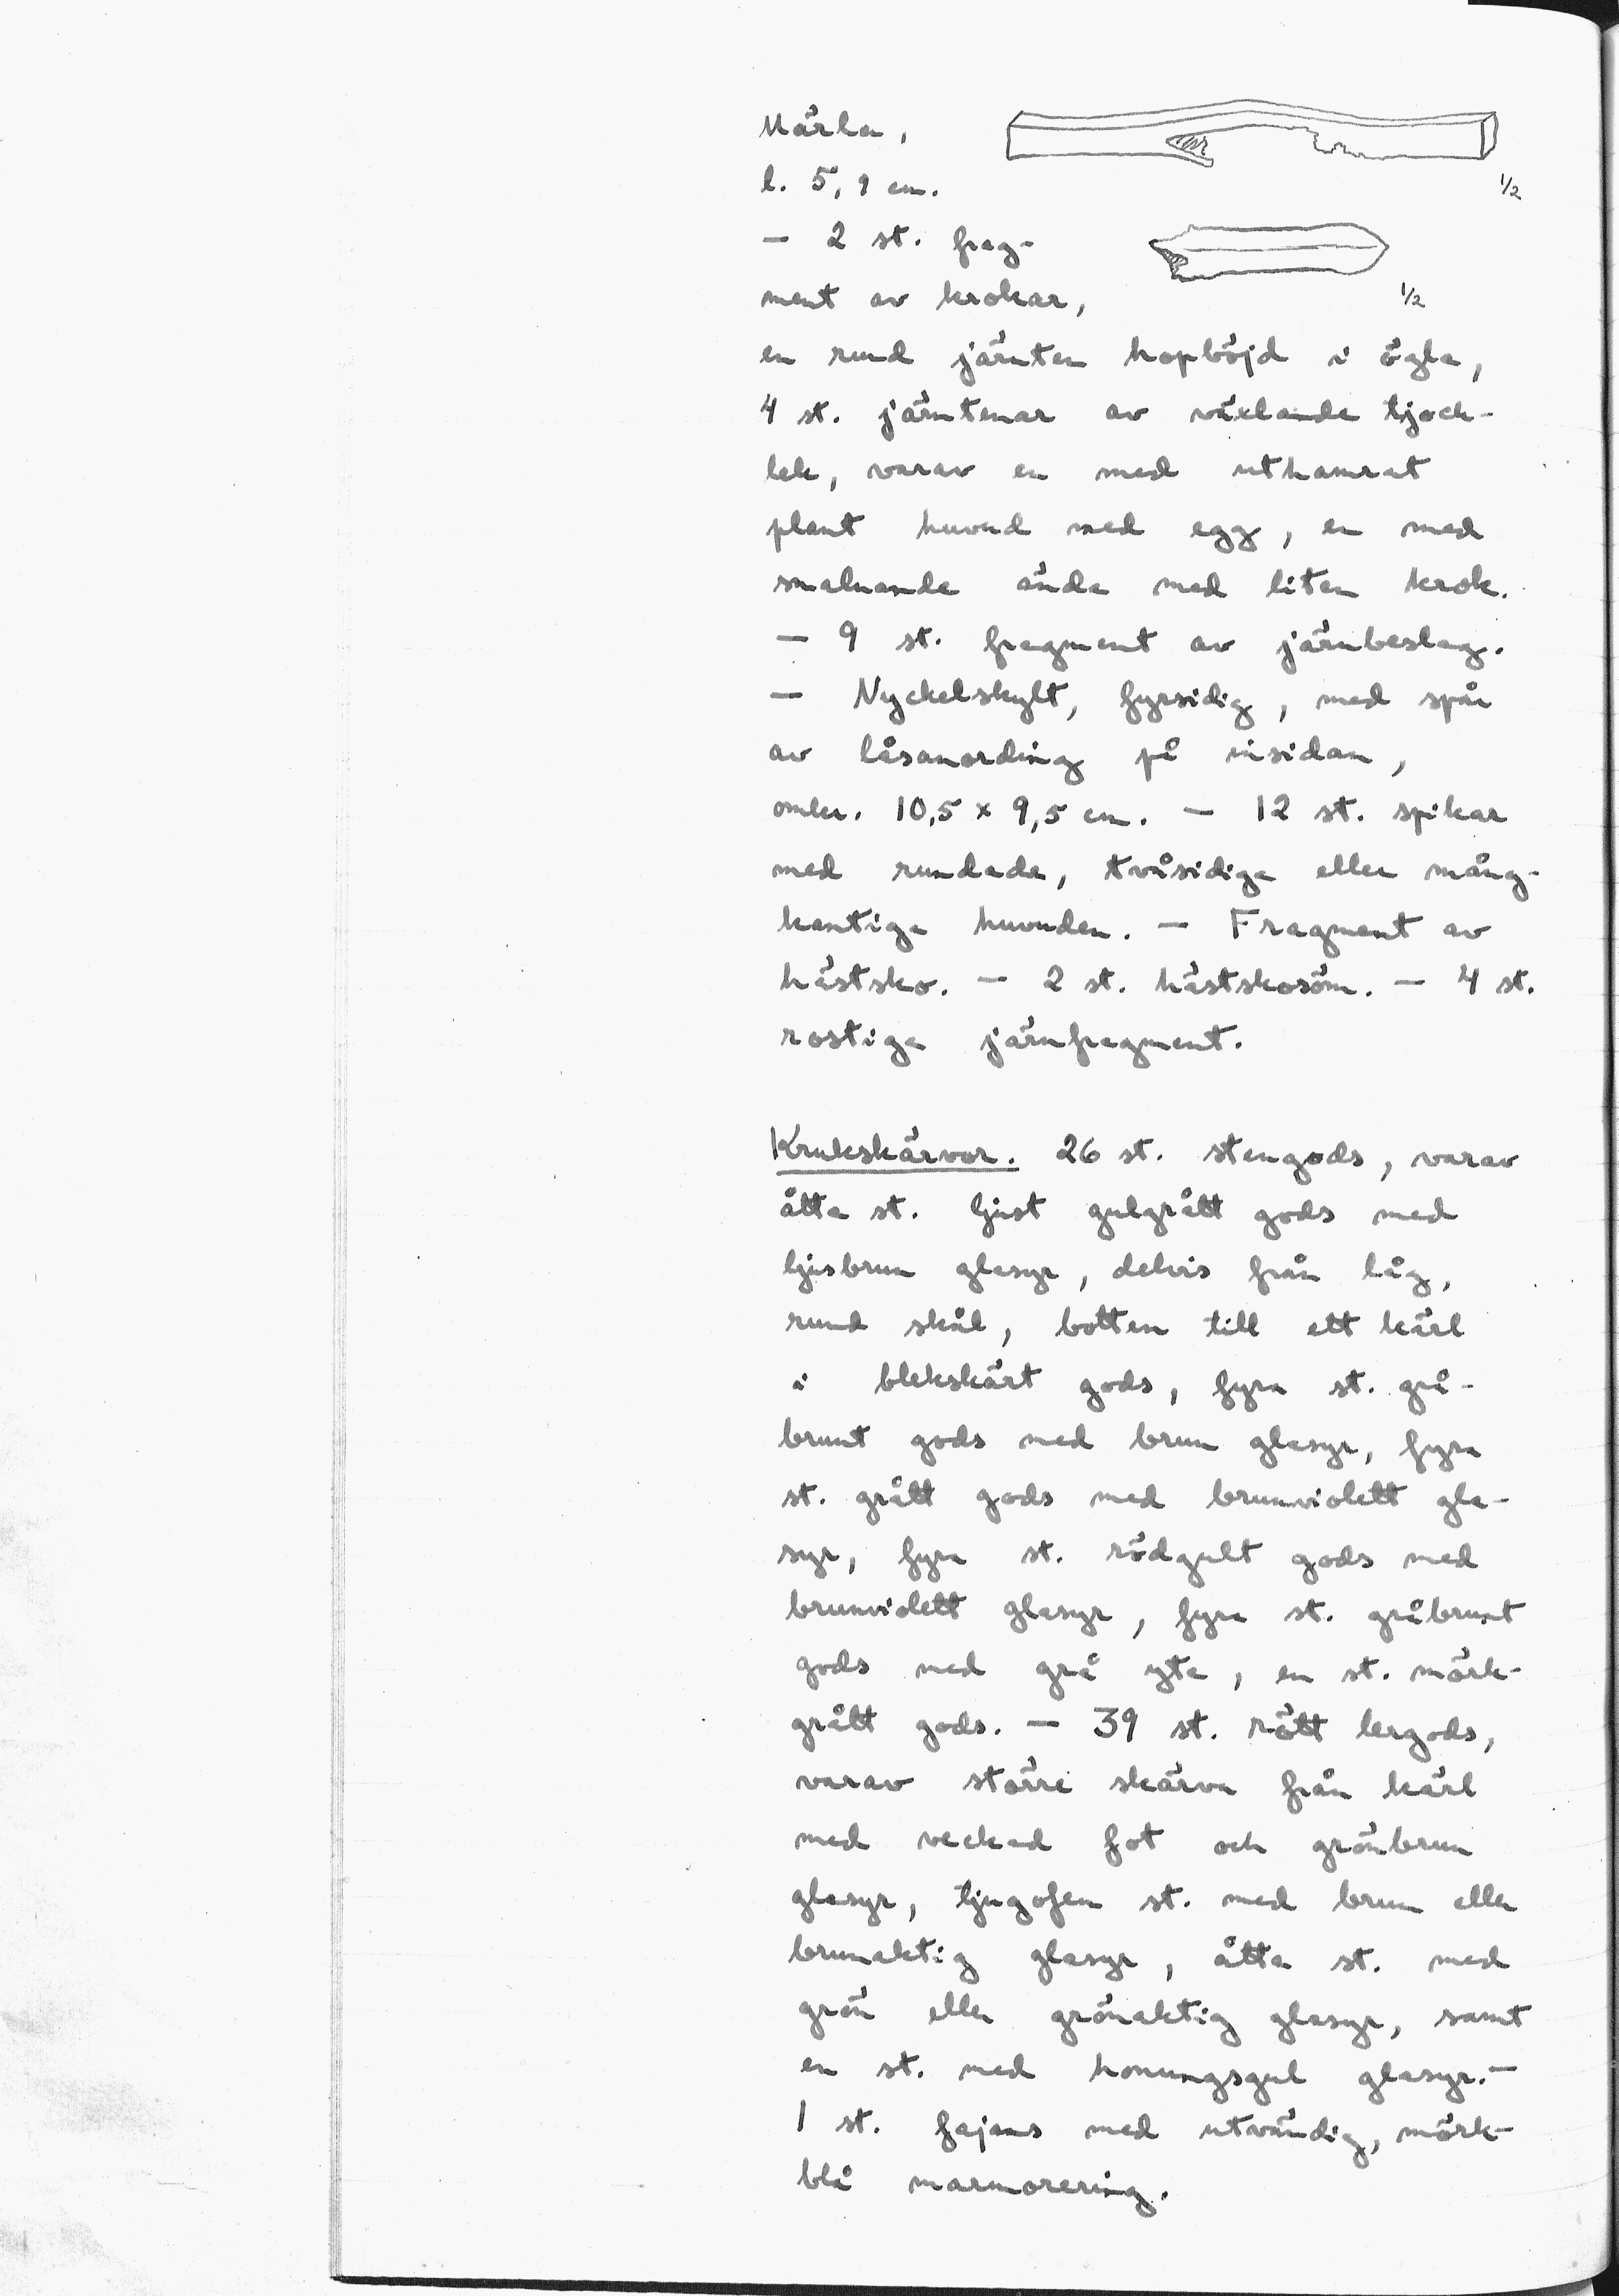 Märla,
l. 5,9 cm.
1/2
— 2 st. frag-
ment av krokar,
1/2
en rund järnten hopböjd i ögla,
4 st. järntenar av växlande tjock-
lek, varav en med uthamrat
plant huvud med egg, en med
smalnande ände med liten krok.
— 9 st. fragment av järnbeslag.
— Nyckelskylt, fyrsidig, med spår
av låsanording på insidan,
omkr. 10,5 x 9,5 cm. — 12 st. spikar
med rundade, tvåsidiga eller mång-
kantiga huvuden. — Fragment av
hästsko. — 2 st. hästskosöm. — 4 st.
rostiga järnfragment.
Krukskärvor. 26 st. stengods, varav
åtta st. ljust gulgrått gods med
ljusbrun glasyr, delvis från låg,
rund skål, botten till ett kärl
i blekskärt gods, fyra st. grå-
brunt gods med brun glasyr, fyra
st. grått gods med brunviolett gla-
syr, fyra st. rödgult gods med
brunviolett glasyr, fyra st. gråbrunt
gods med grå yta, en st. mörk-
grått gods. — 39 st. rött lergods,
varav större skärva från kärl
med veckad fot och grönbrun
glasyr, tjugofem st. med brun eller
brunaktig glasyr, åtta st. med
grön eller grönaktig glasyr, samt
en st. med honungsgul glasyr. —
1 st. fajans med utvändig, mörk-
blå marmorering.